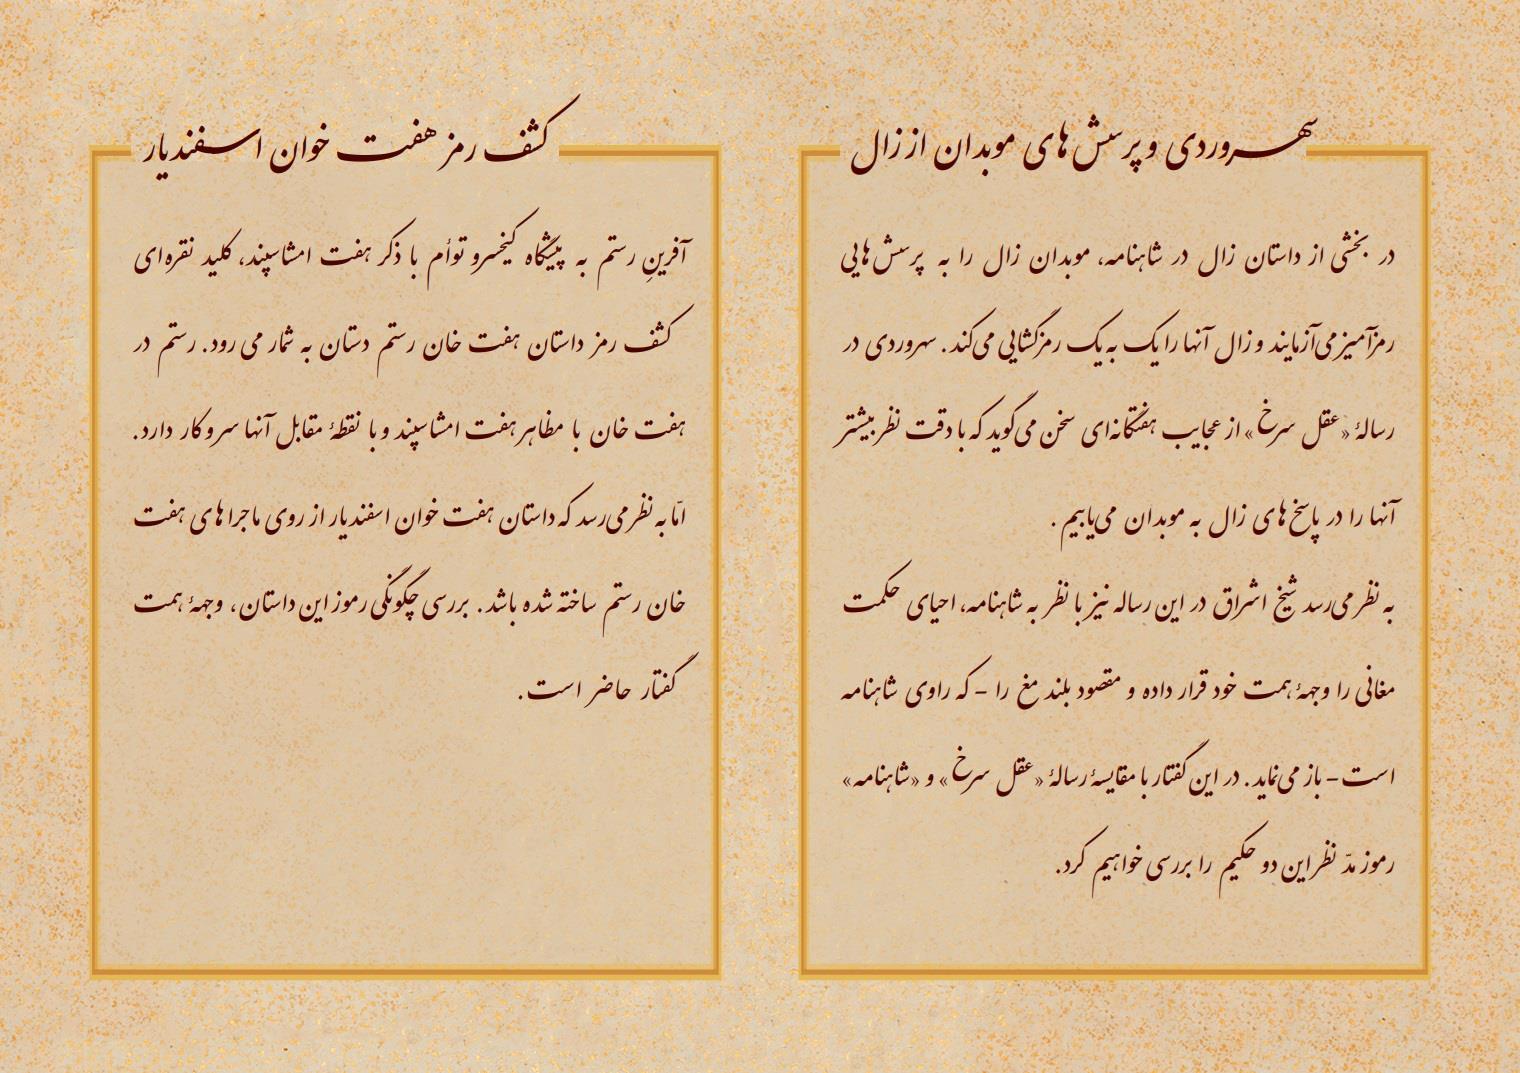 سهروردی و پرسش‌های موبدان از زال
در بخشی از داستان زال در شاهنامه، موبدان زال را به پرسش‌هایی
رمزآمیز می‌آزمایند و زال آنها را یک به یک رمزگشایی می‌کند. سهروردی در
رسالۀ «عقل سرخ» از عجایب هفتگانه‌ای سخن می‌گوید که با دقت نظر بیشتر
آنها را در پاسخ‌های زال به موبدان می‌یابیم.
به نظر می‌رسد شیخ اشراق در این رساله نیز با نظر به شاهنامه، احیای حکمت
مغانی را وجهۀ همت خود قرار داده و مقصود بلند مغ را – که راوی شاهنامه
است – باز می‌نماید. در این گفتار با مقایسۀ رسالۀ «عقل سرخ» و «شاهنامه»
رموز مدّ نظر این دو حکیم را بررسی خواهیم کرد.
کشف رمز هفت خوان اسفندیار
آفرینِ رستم به پیشگاه کیخسرو توأم با ذکر هفت امشاسپند، کلید نقره‌ای
کشف رمز داستان هفت خان رستم دستان به شمار می‌رود. رستم در
هفت خان با مظاهر هفت امشاسپند و با نقطۀ مقابل آنها سر و کار دارد.
امّا به نظر می‌رسد که داستان هفت خوان اسفندیار از روی ماجراهای هفت
خان رستم ساخته شده باشد. بررسی چگونگی رموز این داستان، وجهۀ همت
گفتار حاضر است.